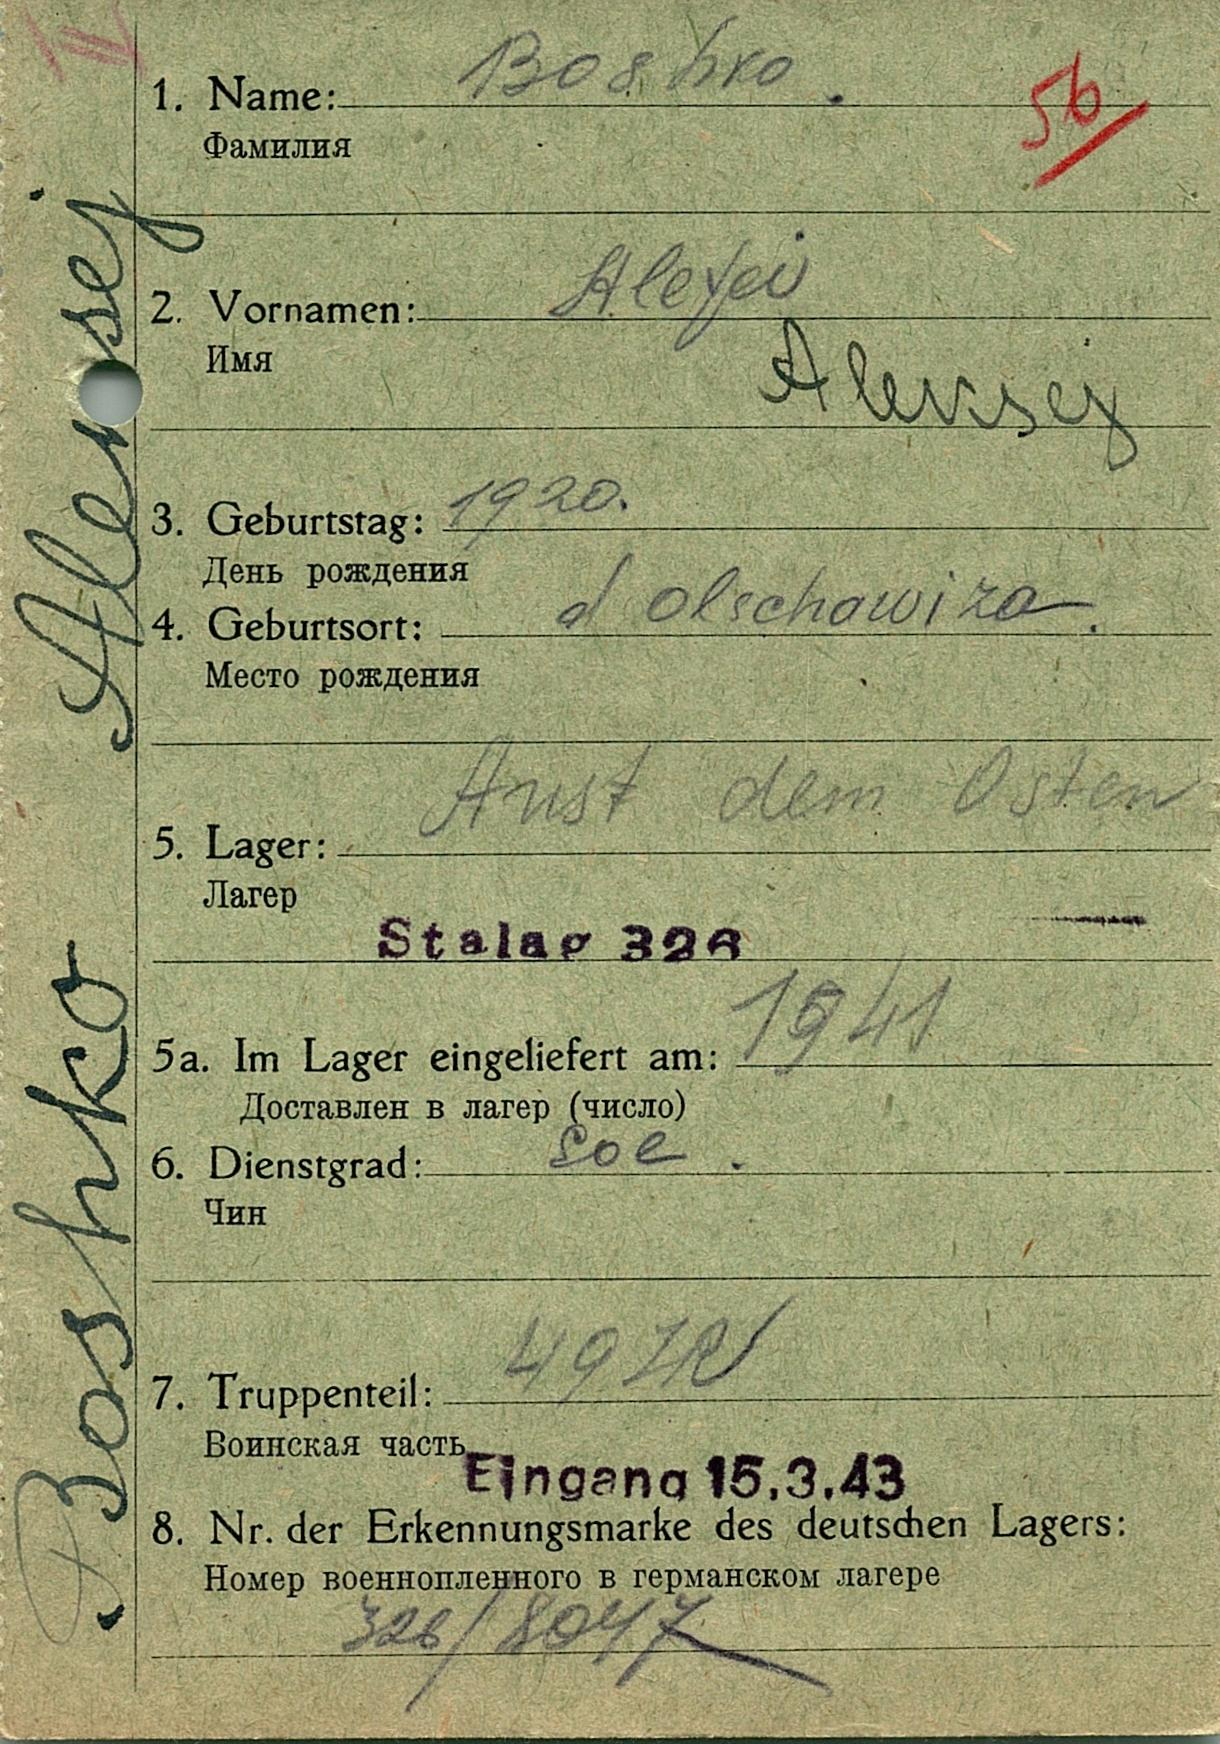 Boshko Aleksej
IV
1. Name: Boshko.
56
Фамилия
2. Vornamen: Alexei
Имя
Aleksej
3. Geburtstag: 1920.
День рождения
4. Geburtsort: d Olschowiza.
Место рождения
Aust dem Osten
5. Lager:
Лагер
Stalag 326
5a. Im Lager eingeliefert am: 1941
Доставлен в лагер (число)
6. Dienstgrad: Sol.
Чин
7. Truppenteil: 49 IR
Воинская часть
Eingang 15.3.43
8. Nr. der Erkennungsmarke des deutschen Lagers:
Номер военнопленного в германском лагере
326/8047